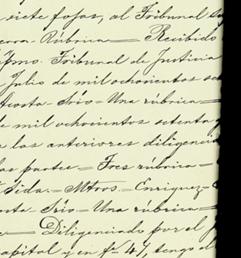 siete fojas, al Tribunal
Rúbrica = Recibido
Tribunal de Justicia
Julio de mil ochocientos
Acosta - Srio - Una rúbrica =
de mil ochocientos setenta
las anteriores diligenc
las partes = Tres rúbricas =
Sida. - Mtros. - Enriquez =
- Srio - Una rúbrica =
= Diligenciado por el
capital y en fs. 41, tengo el